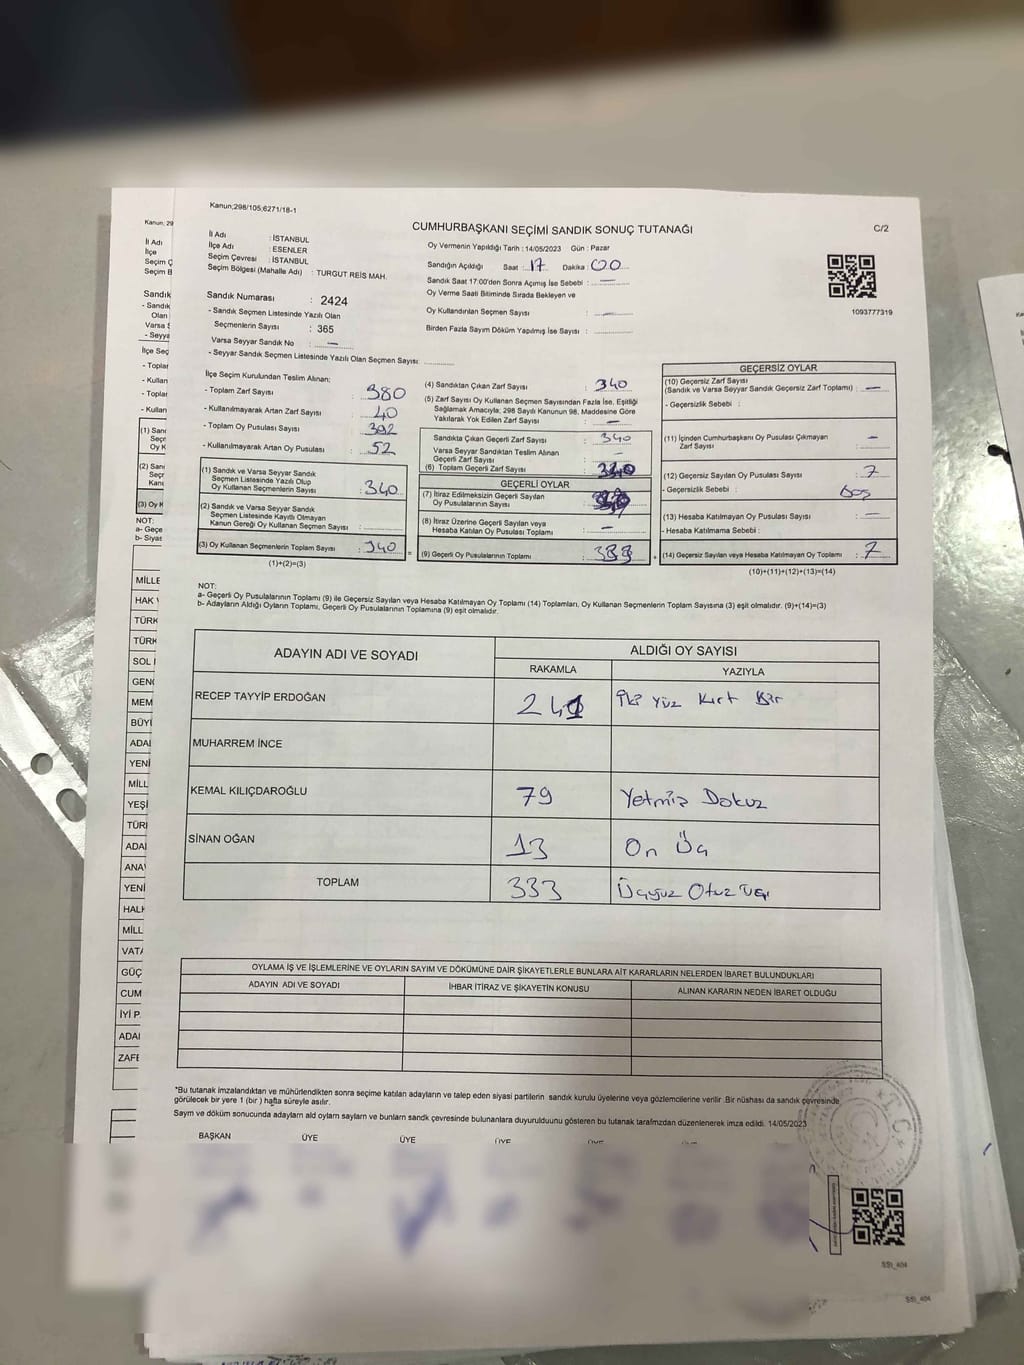 Kanun;298/105;6271/18-1
CUMHURBAŞKANI SEÇİMİ SANDIK SONUÇ TUTANAĞI
C/2
İl Adı : İSTANBUL
İlçe Adı : ESENLER
Seçim Çevresi : İSTANBUL
Seçim Bölgesi (Mahalle Adı) : TURGUT REİS MAH.
Oy Vermenin Yapıldığı Tarih : 14/05/2023 Gün : Pazar
Sandığın Açıldığı Saat : 17 Dakika : 00
Sandık Saat 17:00'den Sonra Açımış İse Sebebi : —
Oy Verme Saati Bitiminde Sırada Bekleyen ve
Oy Kullandırılan Seçmen Sayısı : —
Birden Fazla Sayım Döküm Yapılmış İse Sayısı :
1093777319
Sandık Numarası : 2424
- Sandık Seçmen Listesinde Yazılı Olan
Seçmenlerin Sayısı : 365
Varsa Seyyar Sandık No : —
- Seyyar Sandık Seçmen Listesinde Yazılı Olan Seçmen Sayısı:
İlçe Seçim Kurulundan Teslim Alınan:
- Toplam Zarf Sayısı : 380
- Kullanılmayarak Artan Zarf Sayısı : 40
- Toplam Oy Pusulası Sayısı : 392
- Kullanılmayarak Artan Oy Pusulası : 52
(1) Sandık ve Varsa Seyyar Sandık
Seçmen Listesinde Yazılı Olup
Oy Kullanan Seçmenlerin Sayısı : 340
(2) Sandık ve Varsa Seyyar Sandık
Seçmen Listesinde Kayıtlı Olmayan
Kanun Gereği Oy Kullanan Seçmen Sayısı :
(3) Oy Kullanan Seçmenlerin Toplam Sayısı : 340 =
(1)+(2)=(3)
(4) Sandıktan Çıkan Zarf Sayısı : 340
(5) Zarf Sayısı Oy Kullanan Seçmen Sayısından Fazla İse, Eşitliği
Sağlamak Amacıyla; 298 Sayılı Kanunun 98. Maddesine Göre
Yakılarak Yok Edilen Zarf Sayısı : —
Sandıkta Çıkan Geçerli Zarf Sayısı : 340
Varsa Seyyar Sandıktan Teslim Alınan
Geçerli Zarf Sayısı : —
(6) Toplam Geçerli Zarf Sayısı : 340
GEÇERLİ OYLAR
(7) İtiraz Edilmeksizin Geçerli Sayılan
Oy Pusulalarının Sayısı :
(8) İtiraz Üzerine Geçerli Sayılan veya
Hesaba Katılan Oy Pusulası Toplamı : —
(9) Geçerli Oy Pusulalarının Toplamı : 333 +
GEÇERSİZ OYLAR
(10) Geçersiz Zarf Sayısı
(Sandık ve Varsa Seyyar Sandık Geçersiz Zarf Toplamı) : —
- Geçersizlik Sebebi :
(11) İçinden Cumhurbaşkanı Oy Pusulası Çıkmayan
Zarf Sayısı : —
(12) Geçersiz Sayılan Oy Pusulası Sayısı : 7
- Geçersizlik Sebebi : boş
(13) Hesaba Katılmayan Oy Pusulası Sayısı : —
- Hesaba Katılmama Sebebi :
(14) Geçersiz Sayılan veya Hesaba Katılmayan Oy Toplamı : 7
(10)+(11)+(12)+(13)=(14)
NOT:
a- Geçerli Oy Pusulalarının Toplamı (9) ile Geçersiz Sayılan veya Hesaba Katılmayan Oy Toplamı (14) Toplamları, Oy Kullanan Seçmenlerin Toplam Sayısına (3) eşit olmalıdır. (9)+(14)=(3)
b- Adayların Aldığı Oyların Toplamı, Geçerli Oy Pusulalarının Toplamına (9) eşit olmalıdır.
ADAYIN ADI VE SOYADI ALDIĞI OY SAYISI
RAKAMLA YAZIYLA
RECEP TAYYİP ERDOĞAN 241 İki Yüz Kırk Bir
MUHARREM İNCE
KEMAL KILIÇDAROĞLU 79 Yetmiş Dokuz
SİNAN OĞAN 13 On Üç
TOPLAM 333 Üçyüz Otuz Üç
OYLAMA İŞ VE İŞLEMLERİNE VE OYLARIN SAYIM VE DÖKÜMÜNE DAİR ŞİKAYETLERLE BUNLARA AİT KARARLARIN NELERDEN İBARET BULUNDUKLARI
ADAYIN ADI VE SOYADI İHBAR İTİRAZ VE ŞİKAYETİN KONUSU ALINAN KARARIN NEDEN İBARET OLDUĞU
*Bu tutanak imzalandıktan ve mühürlendikten sonra seçime katılan adayların ve talep eden siyasi partilerin sandık kurulu üyelerine veya gözlemcilerine verilir .Bir nüshası da sandık çevresinde
görülecek bir yere 1 (bir ) hafta süreyle asılır.
Sayım ve döküm sonucunda adayların ald oyların sayların ve bunların sandk çevresinde bulunanlara duyurulduunu gösteren bu tutanak tarafmzdan düzenlenerek imza edildi. 14/05/2023
BAŞKAN ÜYE ÜYE ÜYE
SSt_404
SSt_404
Kanun; 29
İl Adı
İlçe
Seçim Ç
Seçim B
Sandık
- Sandık
Olan
Varsa S
- Seyya
İlçe Seç
- Toplar
- Kullan
- Toplar
- Kullan
(1) San
Seçr
Oy K
(2) San
Seçr
Kanu
(3) Oy K
NOT:
a- Geçe
b- Siyas
MİLLE
HAK
TÜRK
TÜRK
SOL
GENÇ
MEM
BÜYÜ
ADAL
YENİ
MİLL
YEŞİ
TÜRK
ADAL
ANA
YENİ
HALK
MİLL
VATA
GÜÇ
CUM
İYİ P
ADAL
ZAFE